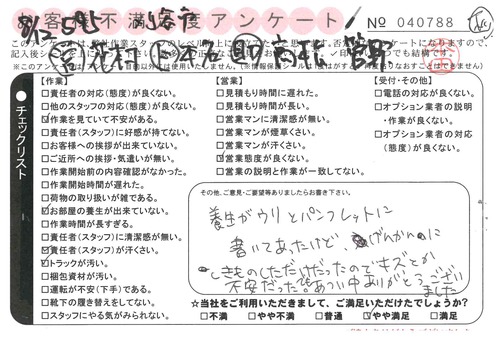 お客様不満足度アンケート
No 040788
8/12
【作業】
□責任者の対応(態度)が良くない。
□他のスタッフの対応(態度)が良くない。
□作業を見ていて不安がある。
□責任者(スタッフ)に好感が持てない。
□お客様への挨拶が出来ていない。
□ご近所への挨拶・気遣いが無い。
□作業開始前の内容確認がなかった。
□作業開始時間が遅れた。
□荷物の取り扱いが雑である。
□お部屋の養生が出来ていない。
□作業時間が長すぎる。
□責任者(スタッフ)に清潔感が無い。
□責任者(スタッフ)が汗くさい。
□トラックが汚い。
□梱包資材が汚い。
□運転が不安(下手)である。
□靴下の履き替えをしてない。
□スタッフにやる気がみられない。
【営業】
□見積もり時間に遅れた。
□見積もり時間が長い。
□営業マンに清潔感が無い。
□営業マンが煙草くさい。
□営業マンが汗くさい。
□営業態度が良くない。
□営業の説明と作業が一致してない。
【受付・その他】
□電話の対応が良くない。
□オプション業者の説明
・作業が良くない。
□オプション業者の対応
(態度)が良くない。
チェックリスト
その他、ご意見・ご要望等ありましたらお書き下さい。
養生がウリとパンフレットに
書いてあったけど、げんかんに
しきものしただけだったのでキズとか
不安だった。あつい中ありがとうござい
ました
☆当社をご利用いただきまして、ご満足いただけたでしょうか?
□不満 □やや不満 □普通 □やや満足 □満足